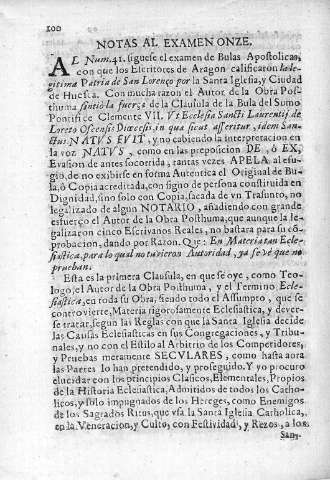 100
NOTAS AL EXAMEN ONZE.
AL Num. 41. siguese el examen de Bulas Apostolicas,
con que los Escritores de Aragon calificaron la le-
gitima Patria de San Lorenço por la Santa Iglesia, y Ciudad
de Huesca. Con mucha razon el Autor de la Obra Pos-
thuma sintiò la fuerça de la Clausula de la Bula del Sumo
Pontifice Clemente VII. Vt Ecclesia Sancti Laurentij de
Loreto Oscensis Diœcesis, in qua sicut asseritur, idem San-
ctus NATVS FVIT, y no cabiendo la interpretacion en
la voz NATVS, como en las preposicion DE, ò EX,
Evasion de antes socorrida, tantas vezes APELA al esu-
gio, de no exibirse en forma Autentica el Original de Bu-
la, ò Copia acreditada, con signo de persona constituida en
Dignidad, sino solo con Copia, sacada de vn Trasunto, no
legalizado de algun NOTARIO, añadiendo con grande
esfuerço el Autor de la Obra Posthuma, que aunque la le-
galizaron cinco Escrivanos Reales, no bastara para su cō-
probacion, dando por Razon. Que: En Materia tan Ecle-
siastica, para lo qual no tuvieron Autoridad, ya se vè que no
prueban.
Esta es la primera Clausula, en que se oye, como Teo-
logo, el Autor de la Obra Posthuma, y el Termino Ecle-
siastica, en toda su Obra, siendo todo el Assumpto, que se
controvierte, Materia rigorosamente Eclesiastica, y dever-
se tratar, segun las Reglas con que la Santa Iglesia decide
las Causas Eclesiasticas en sus Congregaciones, y Tribu-
nales, y no con el Estilo al Arbitrio de los Competidores,
y Pruebas meramente SECVLARES, como hasta aora
las Partes lo han pretendido, y proseguido. Y yo procuro
elucidar con los principios Clasicos, Elementales, Propios
de la Historia Eclesiastica, Admitidos de todos los Catho-
licos, y solo impugnados de los Hereges, como Enemigos
de los Sagrados Ritus, que vsa la Santa Iglesia Catholica,
en la Veneracion, y Culto, con Festividad, y Rezos, a los
San-